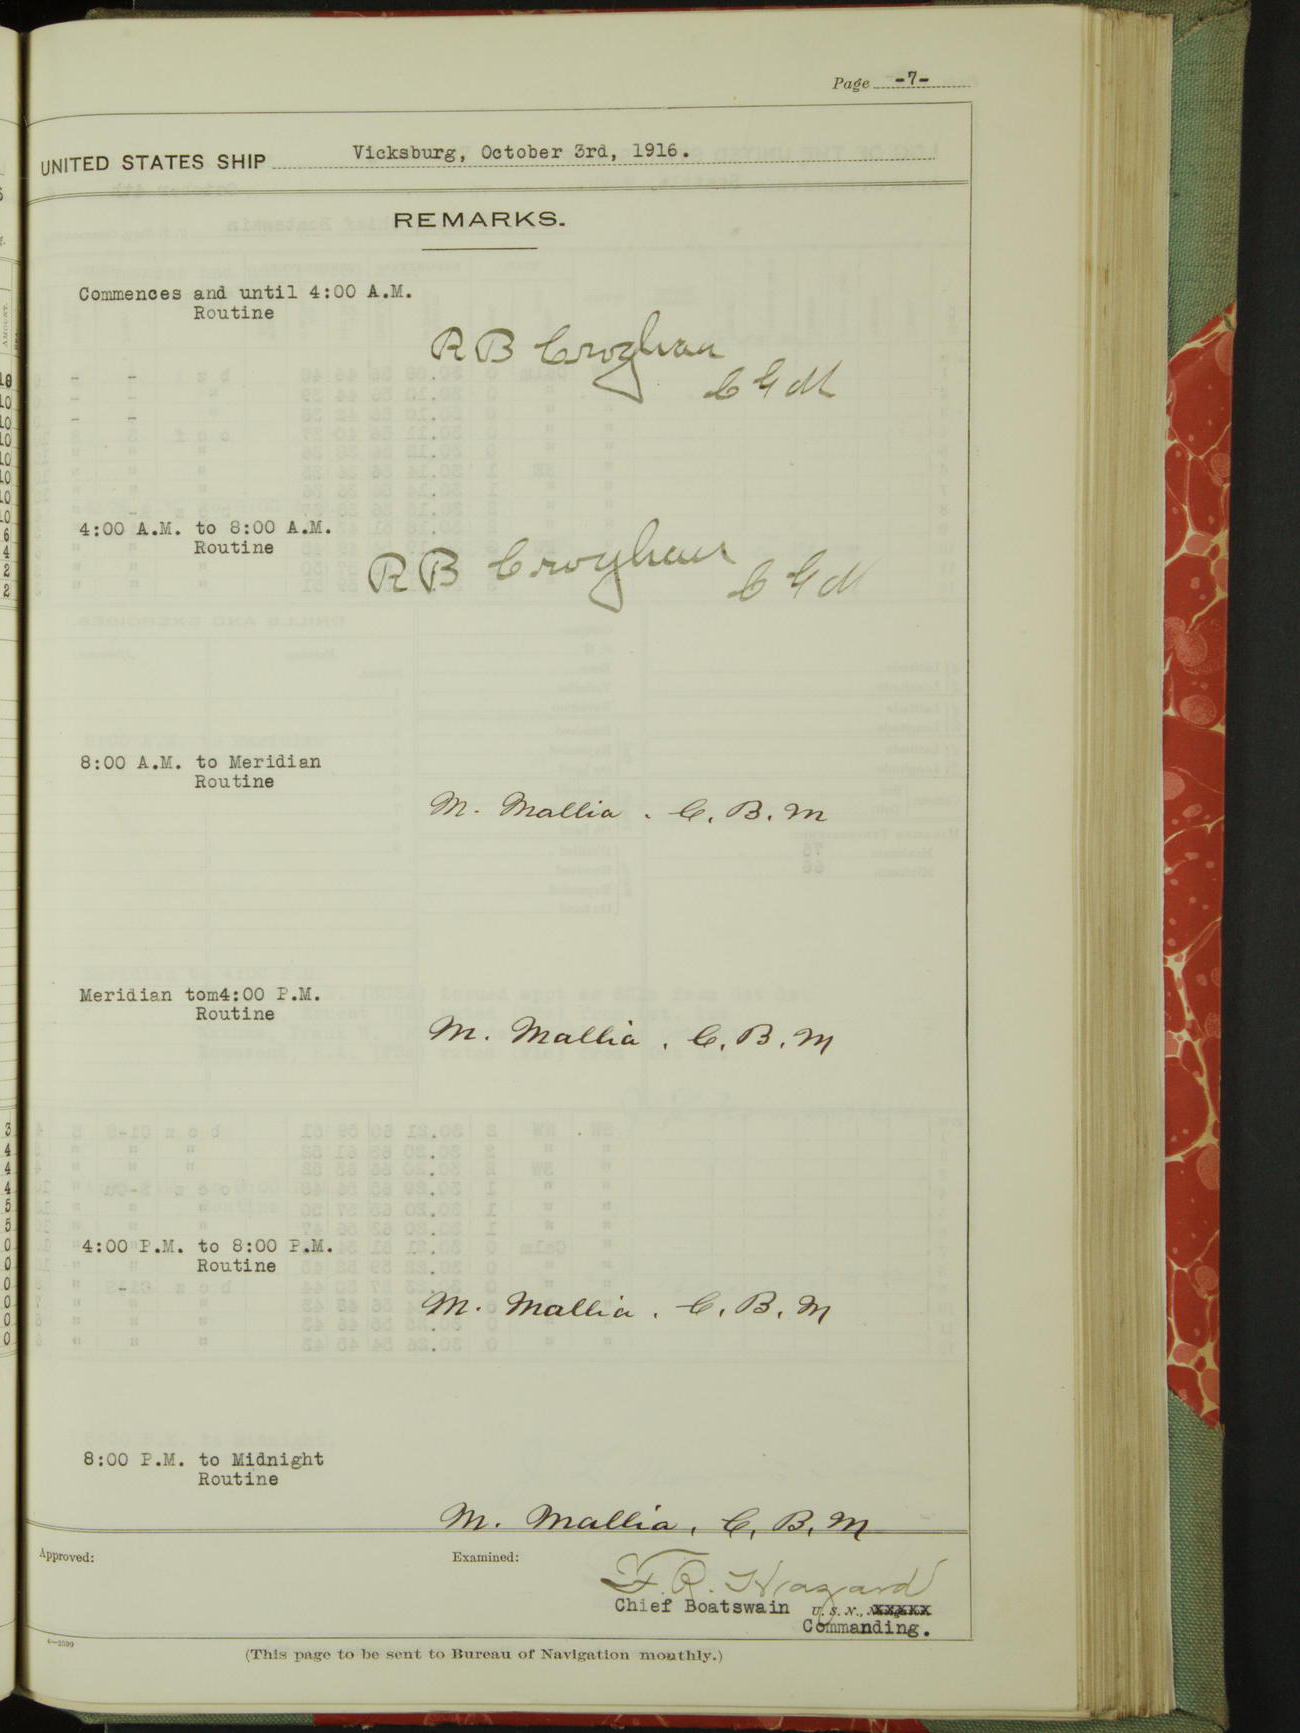 Page -7-
UNITED STATES SHIP Vicksburg, October 3rd, 1916.
REMARKS.
Commences and until 4:00 A.M.
Routine
R B Croghan
C G M
4:00 A.M. to 8:00 A.M.
Routine
R B Croghan C G M
8:00 A.M. to Meridian
Routine
M. Mallia. C. B. M
Meridian tom4:00 P.M.
Routine
M. Mallia. C. B. M
4:00 P.M. to 8:00 P.M.
Routine
M. Mallia. C. B. M
8:00 P.M. to Midnight
Routine
M. Mallia. C. B. M
Approved:
Examined:
F. R. Hazard
Chief Boatswain U. S. N.,
Commanding.
6—2599
(This page to be sent to Bureau of Navigation monthly.)